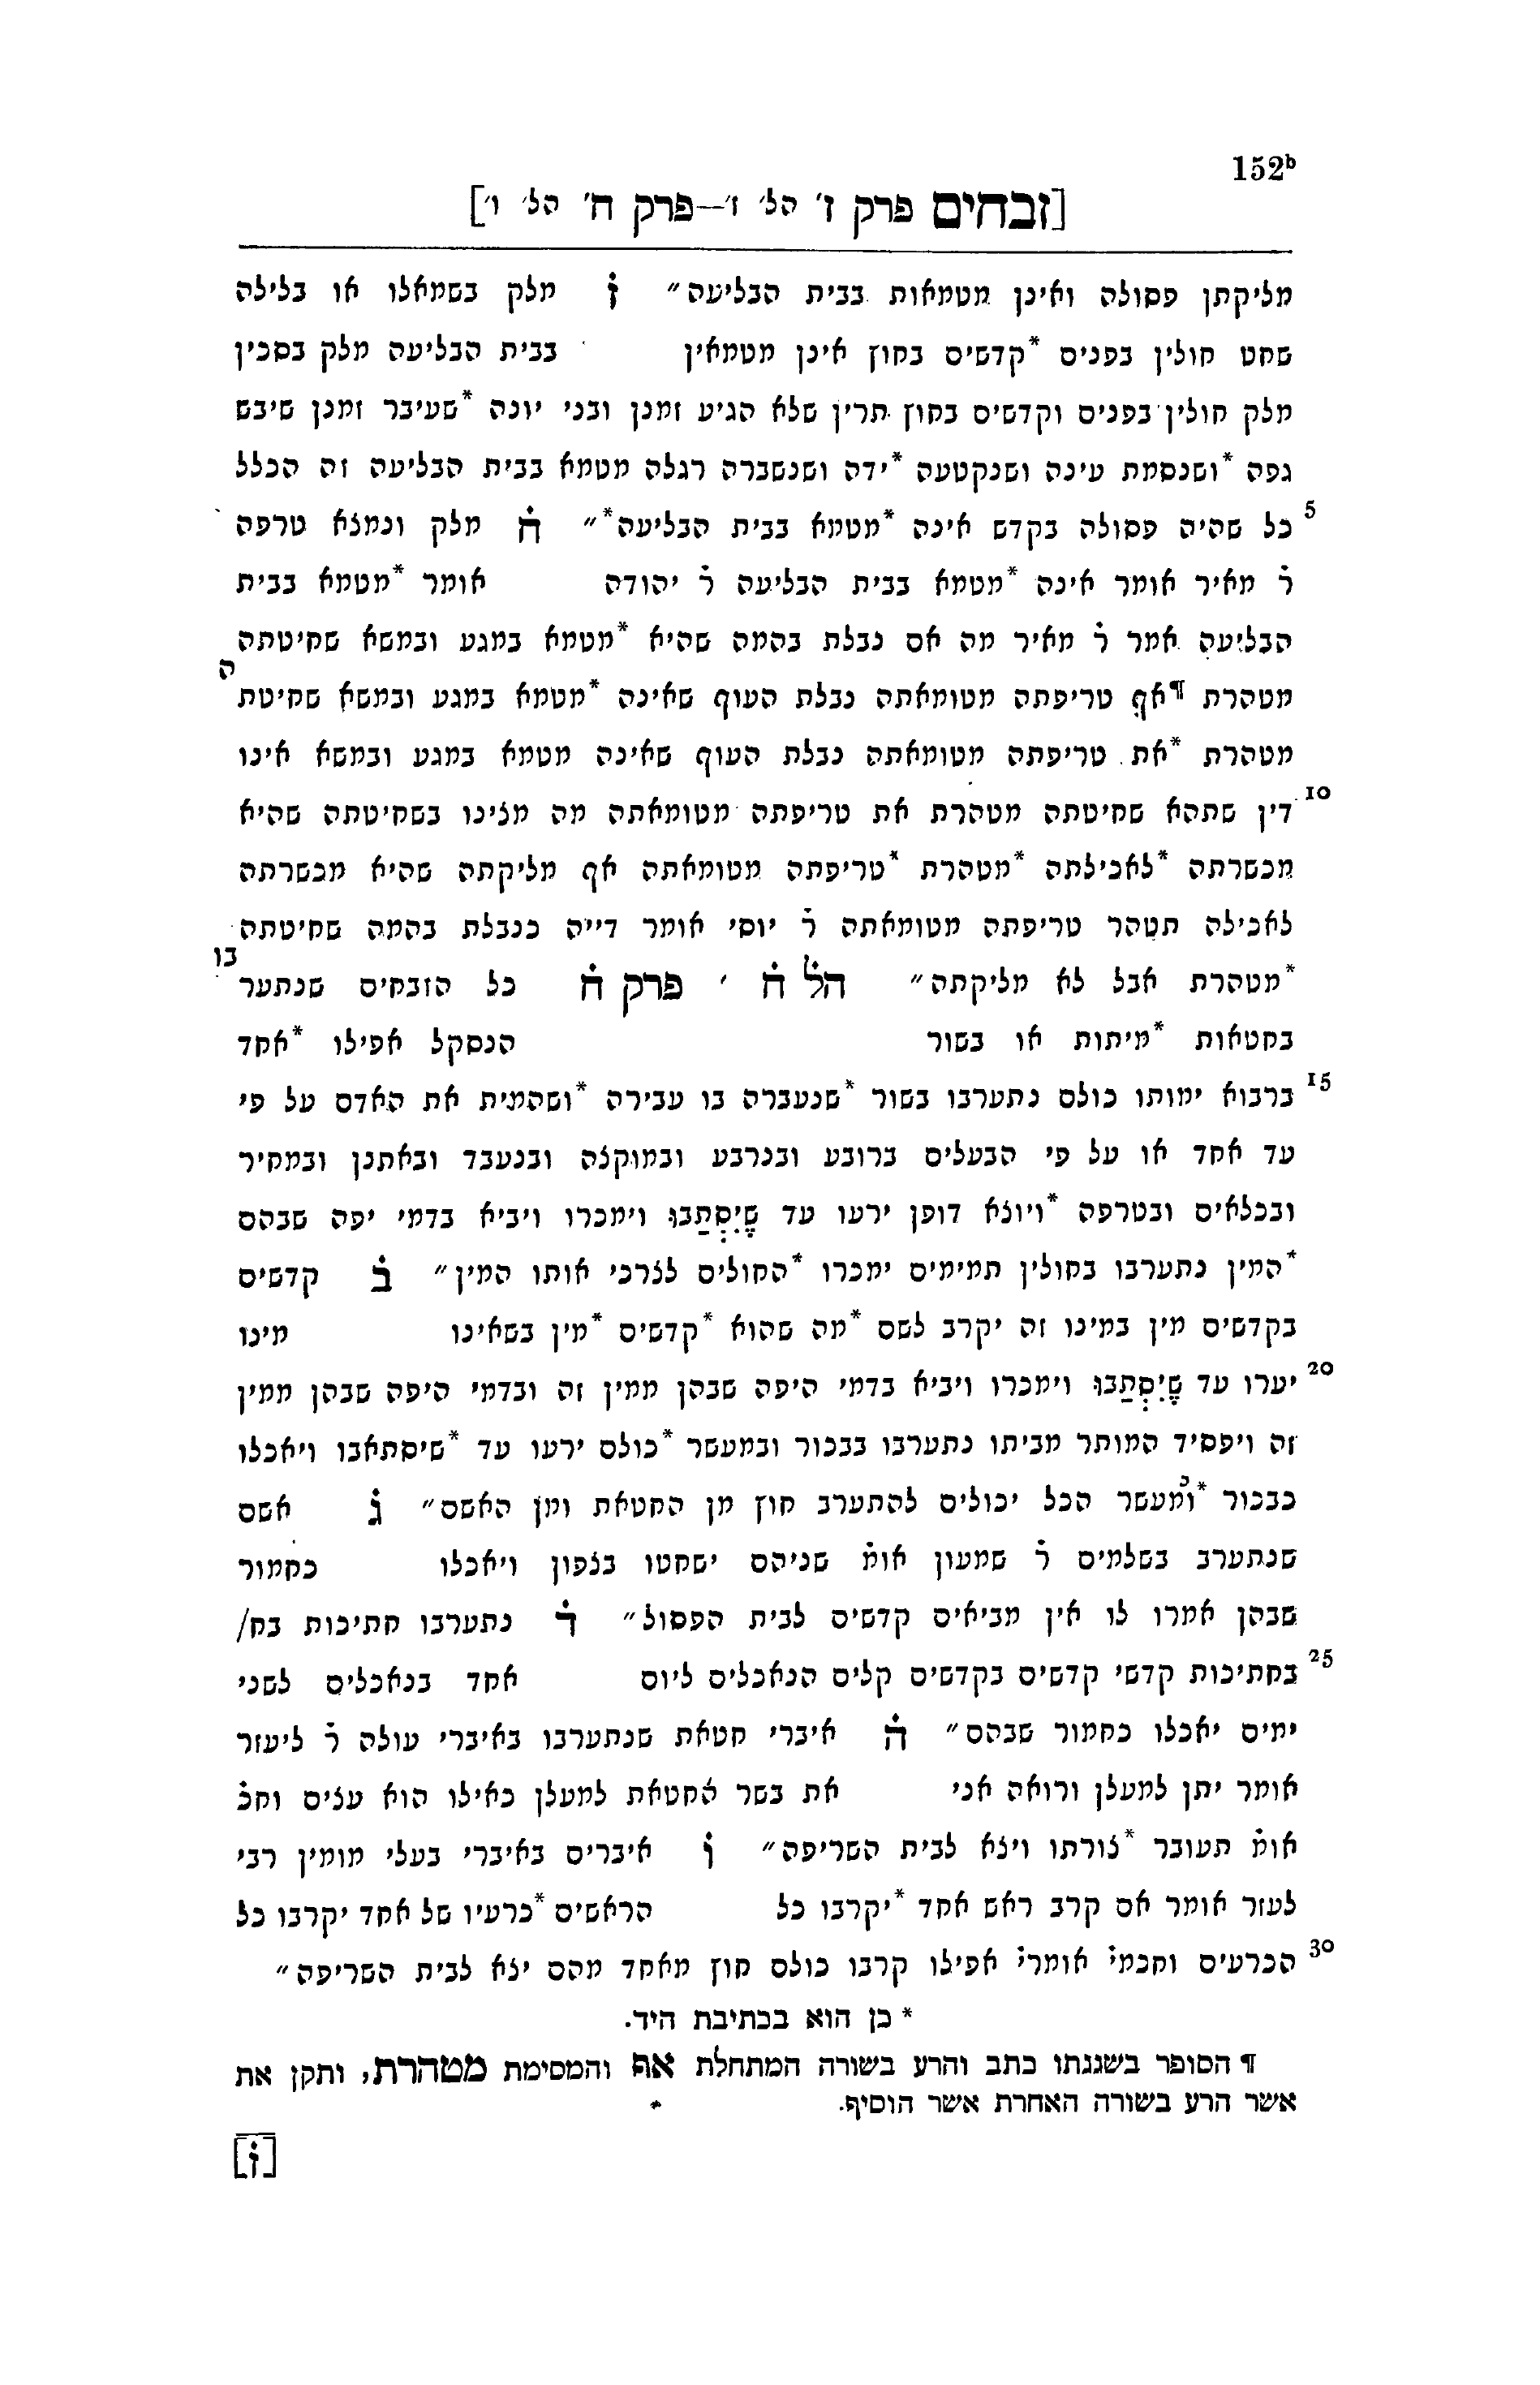 152ᵇ
[זבחים פרק ז׳ הל׳ ז׳—פרק ח׳ הל׳ ו׳]
מליקתן פסולה ואינן מטמאות בבית הבליעה״ ז֗ מלק בשמאלו או בלילה
שחט חולין בפנים *קדשים בחוץ אינן מטמאין בבית הבליעה מלק בסכין
מלק חולין בפנים וקדשים בחוץ תרין שלא הגיע זמנן ובני יונה *שעיבר זמנן שיבש
גפה *ושנסמת עינה ושנקטעה *ידה ושנשברה רגלה מטמא בבית הבליעה זה הכלל
5 כל שהיה פסולה בקדש אינה *מטמא בבית הבליעה*״ ח֗ מלק ונמצא טרפה
ר֗ מאיר אומר אינה *מטמא בבית הבליעה ר֗ יהודה אומר *מטמא בבית
הבליעה אמר ר֗ מאיר מה אם נבלת בהמה שהיא *מטמא במגע ובמשא שחיטתה
מטהרת ¶אף טריפתה מטומאתה נבלת העוף שאינה *מטמא במגע ובמשא שחיטתה
מטהרת *את טריפתה מטומאתה נבלת העוף שאינה מטמא במגע ובמשא אינו
10 דין שתהא שחיטתה מטהרת את טריפתה מטומאתה מה מצינו בשחיטתה שהיא
מכשרתה *לאכילתה *מטהרת *טריפתה מטומאתה אף מליקתה שהיא מכשרתה
לאכילה תטהר טריפתה מטומאתה ר֗ יוסי אומר דייה כנבלת בהמה שחיטתה
*מטהרת אבל לא מליקתה״ הל֗ ח֗ ׳ פרק ח֗ כל הזבחים שנתערבו
בחטאות *מיתות או בשור הנסקל אפילו *אחד
15 ברבוא ימותו כולם נתערבו בשור *שנעברה בו עבירה *ושהמית את האדם על פי
עד אחד או על פי הבעלים ברובע ובנרבע ובמוקצה ובנעבד ובאתנן ובמחיר
ובכלאים ובטרפה *ויוצא דופן ירעו עד שֶׁיִּסְתַּבוּ וימכרו ויביא בדמי יפה שבהם
*המין נתערבו בחולין תמימים ימכרו *החולים לצרכי אותו המין״ ב֗ קדשים
בקדשים מין במינו זה יקרב לשם *מה שהוא *קדשים *מין בשאינו מינו
20 יערו עד שֶׁיִּסְתַּבוּ וימכרו ויביא בדמי היפה שבהן ממין זה ובדמי היפה שבהן ממין
זה ויפסיד המותר מביתו נתערבו בבכור ובמעשר *כולם ירעו עד *שיסתאבו ויאכלו
כבכור *וכ֗מעשר הכל יכולים להתערב חוץ מן החטאת ומן האשם״ ג֗ אשם
שנתערב בשלמים ר֗ שמעון אומ֗ שניהם ישחטו בצפון ויאכלו כחמור
שבהן אמרו לו אין מביאים קדשים לבית הפסול״ ד֗ נתערבו חתיכות בח/
25 בחתיכות קדשי קדשים בקדשים קלים הנאכלים ליום אחד בנאכלים לשני
ימים יאכלו כחמור שבהם״ ה֗ איברי חטאת שנתערבו באיברי עולה ר֗ ליעזר
אומר יתן למעלן ורואה אני את בשר החטאת למעלן כאילו הוא עצים וחכ֗
אומ֗ תעובר *צורתו ויצא לבית השריפה״ ו֗ איברים באיברי בעלי מומין רבי
לעזר אומר אם קרב ראש אחד *יקרבו כל הראשים *כרעיו של אחד יקרבו כל
30 הכרעים וחכמי֗ אומרי֗ אפילו קרבו כולם חוץ מאחד מהם יצא לבית השריפה״
* כן הוא בכתיבת היד.
¶ הסופר בשגגתו כתב והרע בשורה המתחלת אף והמסימת מטהרת, ותקן את
אשר הרע בשורה האחרת אשר הוסיף.
[ז֗]